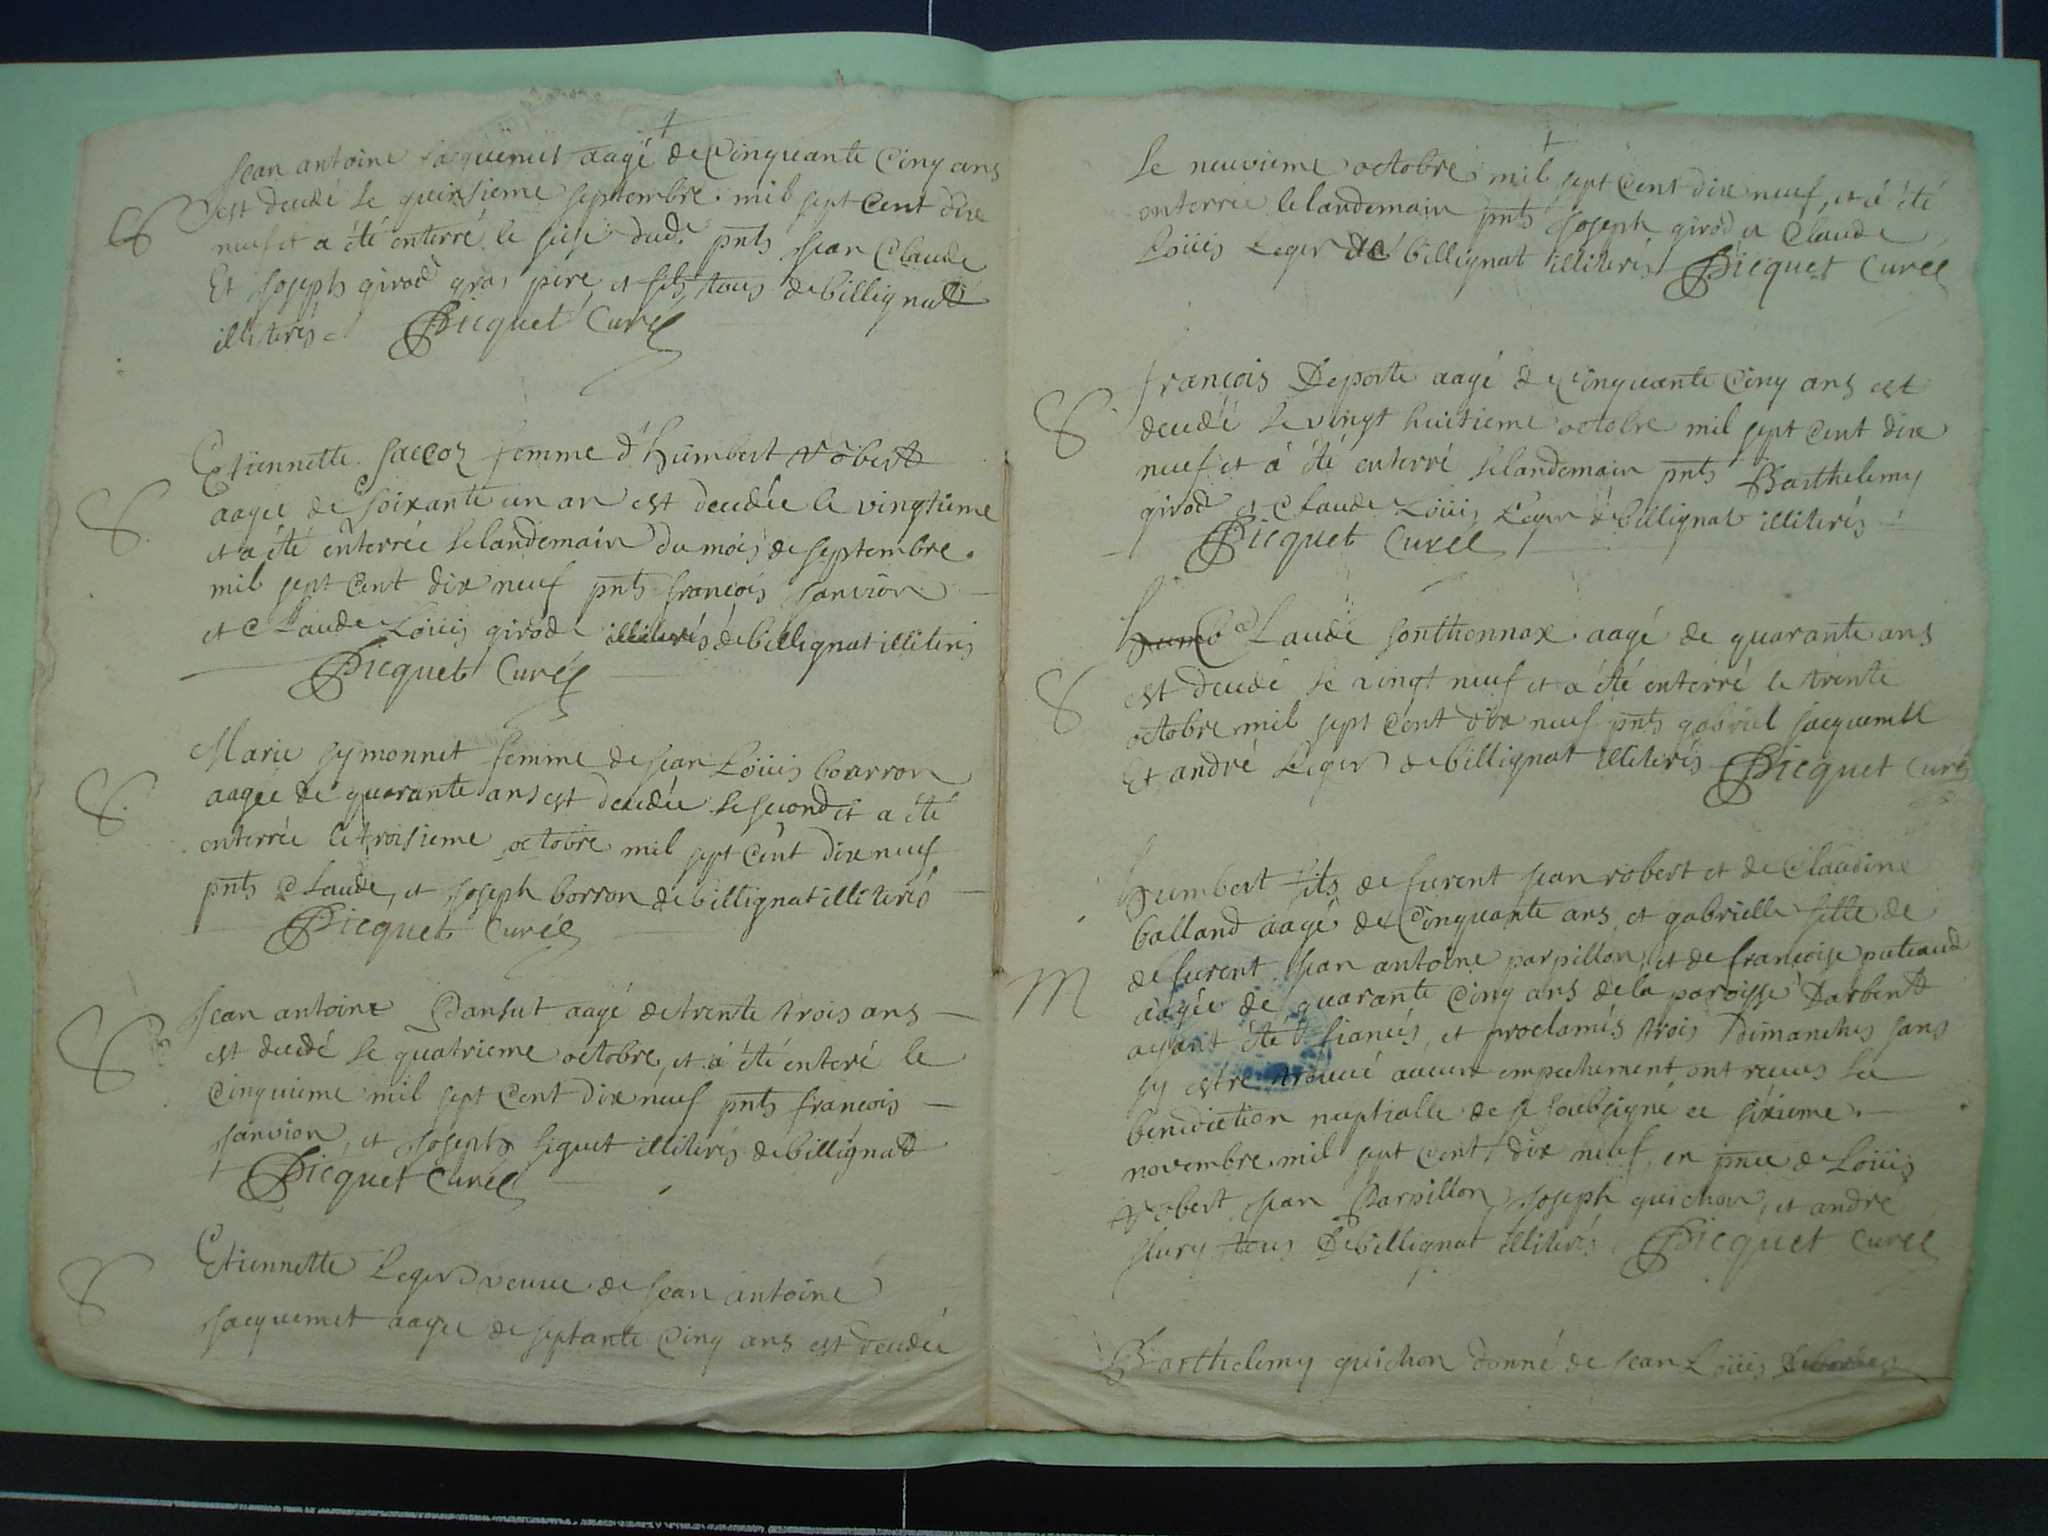 Jean antoine Jacquemet aagé de Cinquante Cinq ans
S est decedé le quinsieme septembre mil sept Cent dix
neuf et a été enterré le seise dud. pnts Jean Claude
Et Joseph girod gros pere, et fils tous de billignat
illiterés Picquet Curé
Etiennette Jaccoz femme d'humbert robert
S. aagée de soixante un an est decedée le vingtieme
et a été enterrée le landemain du mois de septembre
mil sept Cent dix neuf pnts francois Janvion
et Claude Loüis girod illiterés de billignat illiterés
Picquet Curé
Marie symonnet femme de Jean Loüis bourron
S. aagée de quarante ans est decedée le second et a été
enterrée le troisieme octobre mil sept Cent dix neuf
pnts Claude, et Joseph borron de billignat illiterés
Picquet Curé
S Jean antoine Pansut aagé de trente trois ans
est decedé le quatrieme octobre, et a été enteré le
Cinquieme mil sept Cent dix neuf pnts francois
Janvion, et Joseph siguet illiterés de billignat
Picquet Curé
S Etiennette Leger veuve de Jean antoine
Jacquemet aagée de septante Cinq ans est decedée
Le neuvieme octobre mil sept Cent dix neuf, et á été
enterrée le landemain pnts Joseph girod et Claude
Loüis Leger de billignat illiterés Picquet Curé
francois Deporte aagé de Cinquante Cinq ans est
S decedé le vingt huitieme octobre mil sept Cent dix
neuf et á été enterré le landemain pnts Barthelemy
girod et Claude Loüis Leger de billignat illiterés
Picquet Curé
humb Claude sonthonnax aagé de quarante ans
S est decedé le vingt neuf et a été enterré le trente
octobre mil sept Cent dix neuf pnts gabriel Jacquemet
Et andré Leger de billignat illiterés Picquet Curé
humbert fils de furent Jean robert et de Claudine
balland aagé de Cinquante ans, et gabrielle fille de
M de furent Jean antoine parpillon, et de francoise puteaud
aagée de quarante Cinq ans de la paroisse Darbent
ayant été fiancés, et proclamés trois dimanches sans
sy estre trouvé aucun empechement ont receus la
benediction nuptialle de je soubsigné ce sixieme
novembre mil sept Cent dix neuf en pnce de Loüis
robert Jean Parpillon Joseph quichon, et andre
flury tous de billignat illiterés Picquet Curé
Barthelemy quichon donné de Jean Loüis